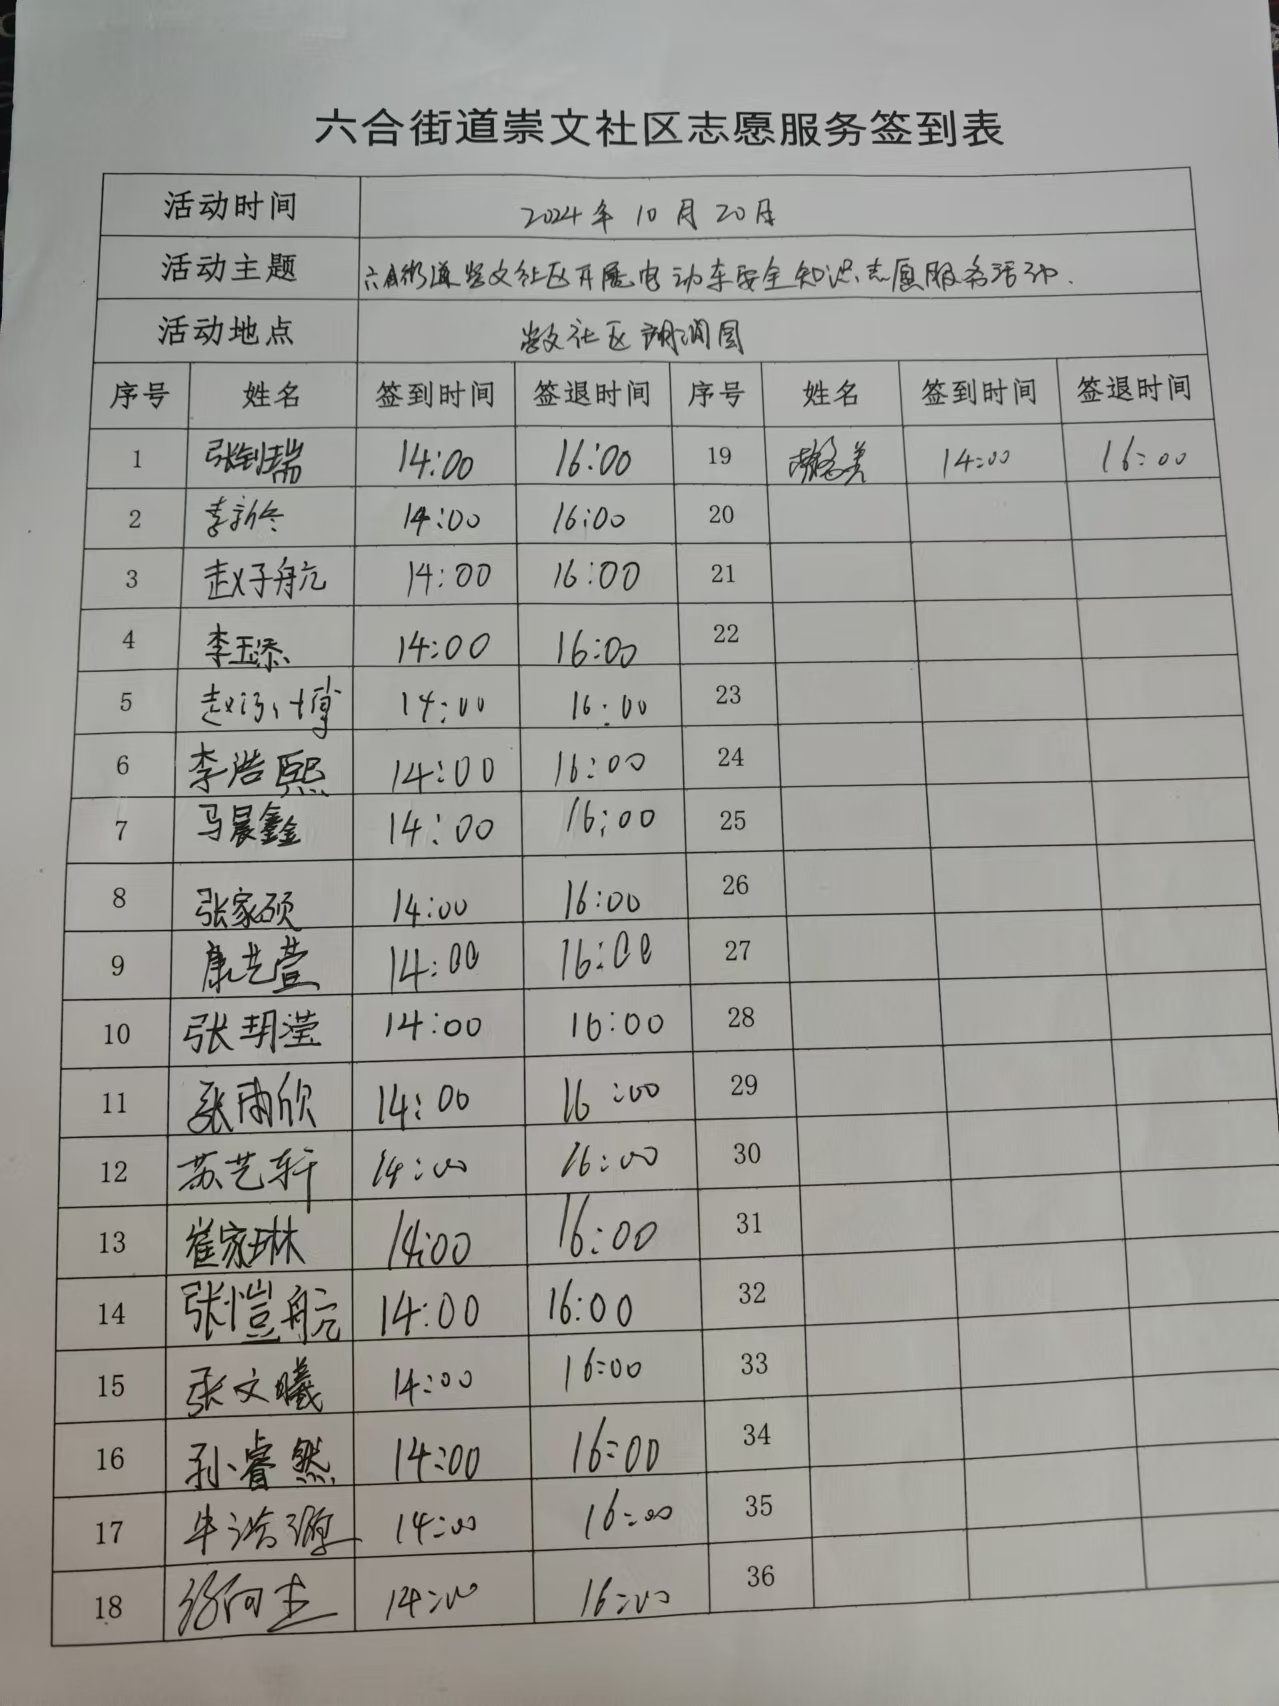 六合街道崇文社区志愿服务签到表
活动时间 2024年10月20日
活动主题 六合街道崇文社区开展电动车安全知识志愿服务活动.
活动地点 崇文社区润园
序号 姓名 签到时间 签退时间 序号 姓名 签到时间 签退时间
1 张瑞 14:00 16:00 19 14:00 16:00
2 李新 14:00 16:00 20
3 赵子航 14:00 16:00 21
4 李玉添 14:00 16:00 22
5 赵博 14:00 16:00 23
6 李浩熙 14:00 16:00 24
7 马晨鑫 14:00 16:00 25
8 张家硕 14:00 16:00 26
9 康艺萱 14:00 16:00 27
10 张玥滢 14:00 16:00 28
11 张雨欣 14:00 16:00 29
12 苏艺轩 14:00 16:00 30
13 崔家琳 14:00 16:00 31
14 张恺航 14:00 16:00 32
15 张文曦 14:00 16:00 33
16 孙睿然 14:00 16:00 34
17 牛浩源 14:00 16:00 35
18 14:00 16:00 36